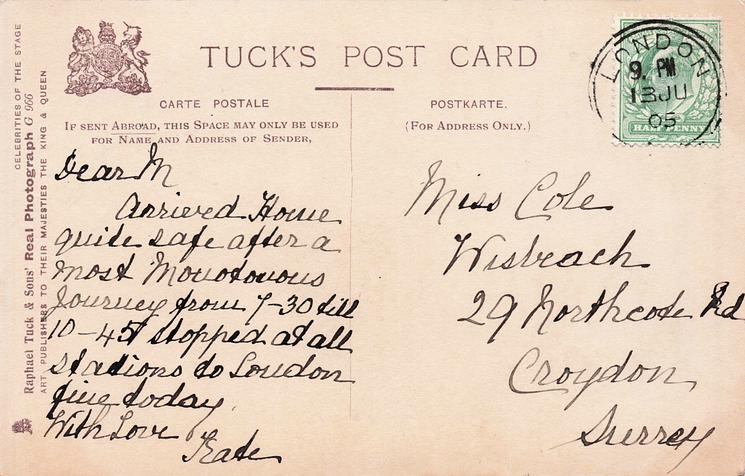 TUCK'S POST CARD
CARTE POSTALE
IF SENT ABROAD, THIS SPACE MAY ONLY BE USED
FOR NAME AND ADDRESS OF SENDER,
POSTKARTE.
(FOR ADDRESS ONLY.)
LONDON
9. PM
13 JU
05
HALF PENNY
CELEBRITIES OF THE STAGE
Raphael Tuck & Sons' Real Photograph G 966
ART PUBLISHERS TO THEIR MAJESTIES THE KING & QUEEN
Dear M
Arrived Home
quite safe after a
most Monotonous
Journey from 7-30 till
10-45 stopped at all
stations to London
fine today
With Love
Kate
Miss Cole
Wisbeach
29 Northcote Rd
Croydon
Surrey